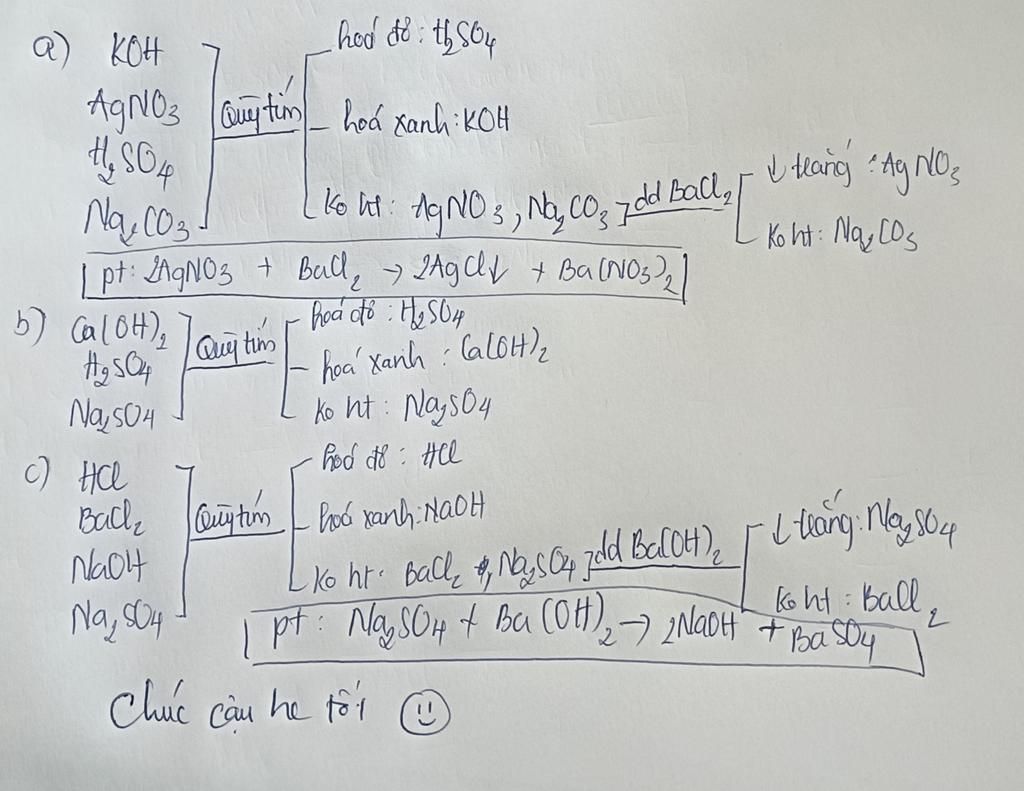 a) KOH
AgNO3
H2SO4
Na2CO3
Quỳ tím
hoá đỏ : H2SO4
hoá xanh : KOH
Ko ht : AgNO3 , Na2CO3
dd BaCl2
↓ trắng : AgNO3
Ko ht : Na2CO3
pt : 2AgNO3 + BaCl2 → 2AgCl↓ + Ba(NO3)2
b) Ca(OH)2
H2SO4
Na2SO4
Quỳ tím
hoá đỏ : H2SO4
hoá xanh : Ca(OH)2
Ko ht : Na2SO4
c) HCl
BaCl2
NaOH
Na2SO4
Quỳ tím
hoá đỏ : HCl
hoá xanh : NaOH
Ko ht : BaCl2 , Na2SO4
dd Ba(OH)2
↓ trắng : Na2SO4
Ko ht : BaCl2
pt : Na2SO4 + Ba(OH)2 → 2NaOH + BaSO4
Chúc cậu hc tốt